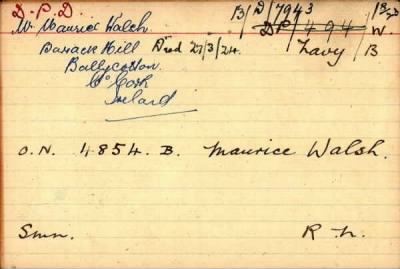 D. P. D.
B/D/7943
Mr Maurice Walsh
DP/494 W.
Barrack Hill Died 27/3/24. Navy B
Ballycotton
Co Cork
Ireland
O.N. 4854. B. Maurice Walsh.
Smn. R.N.